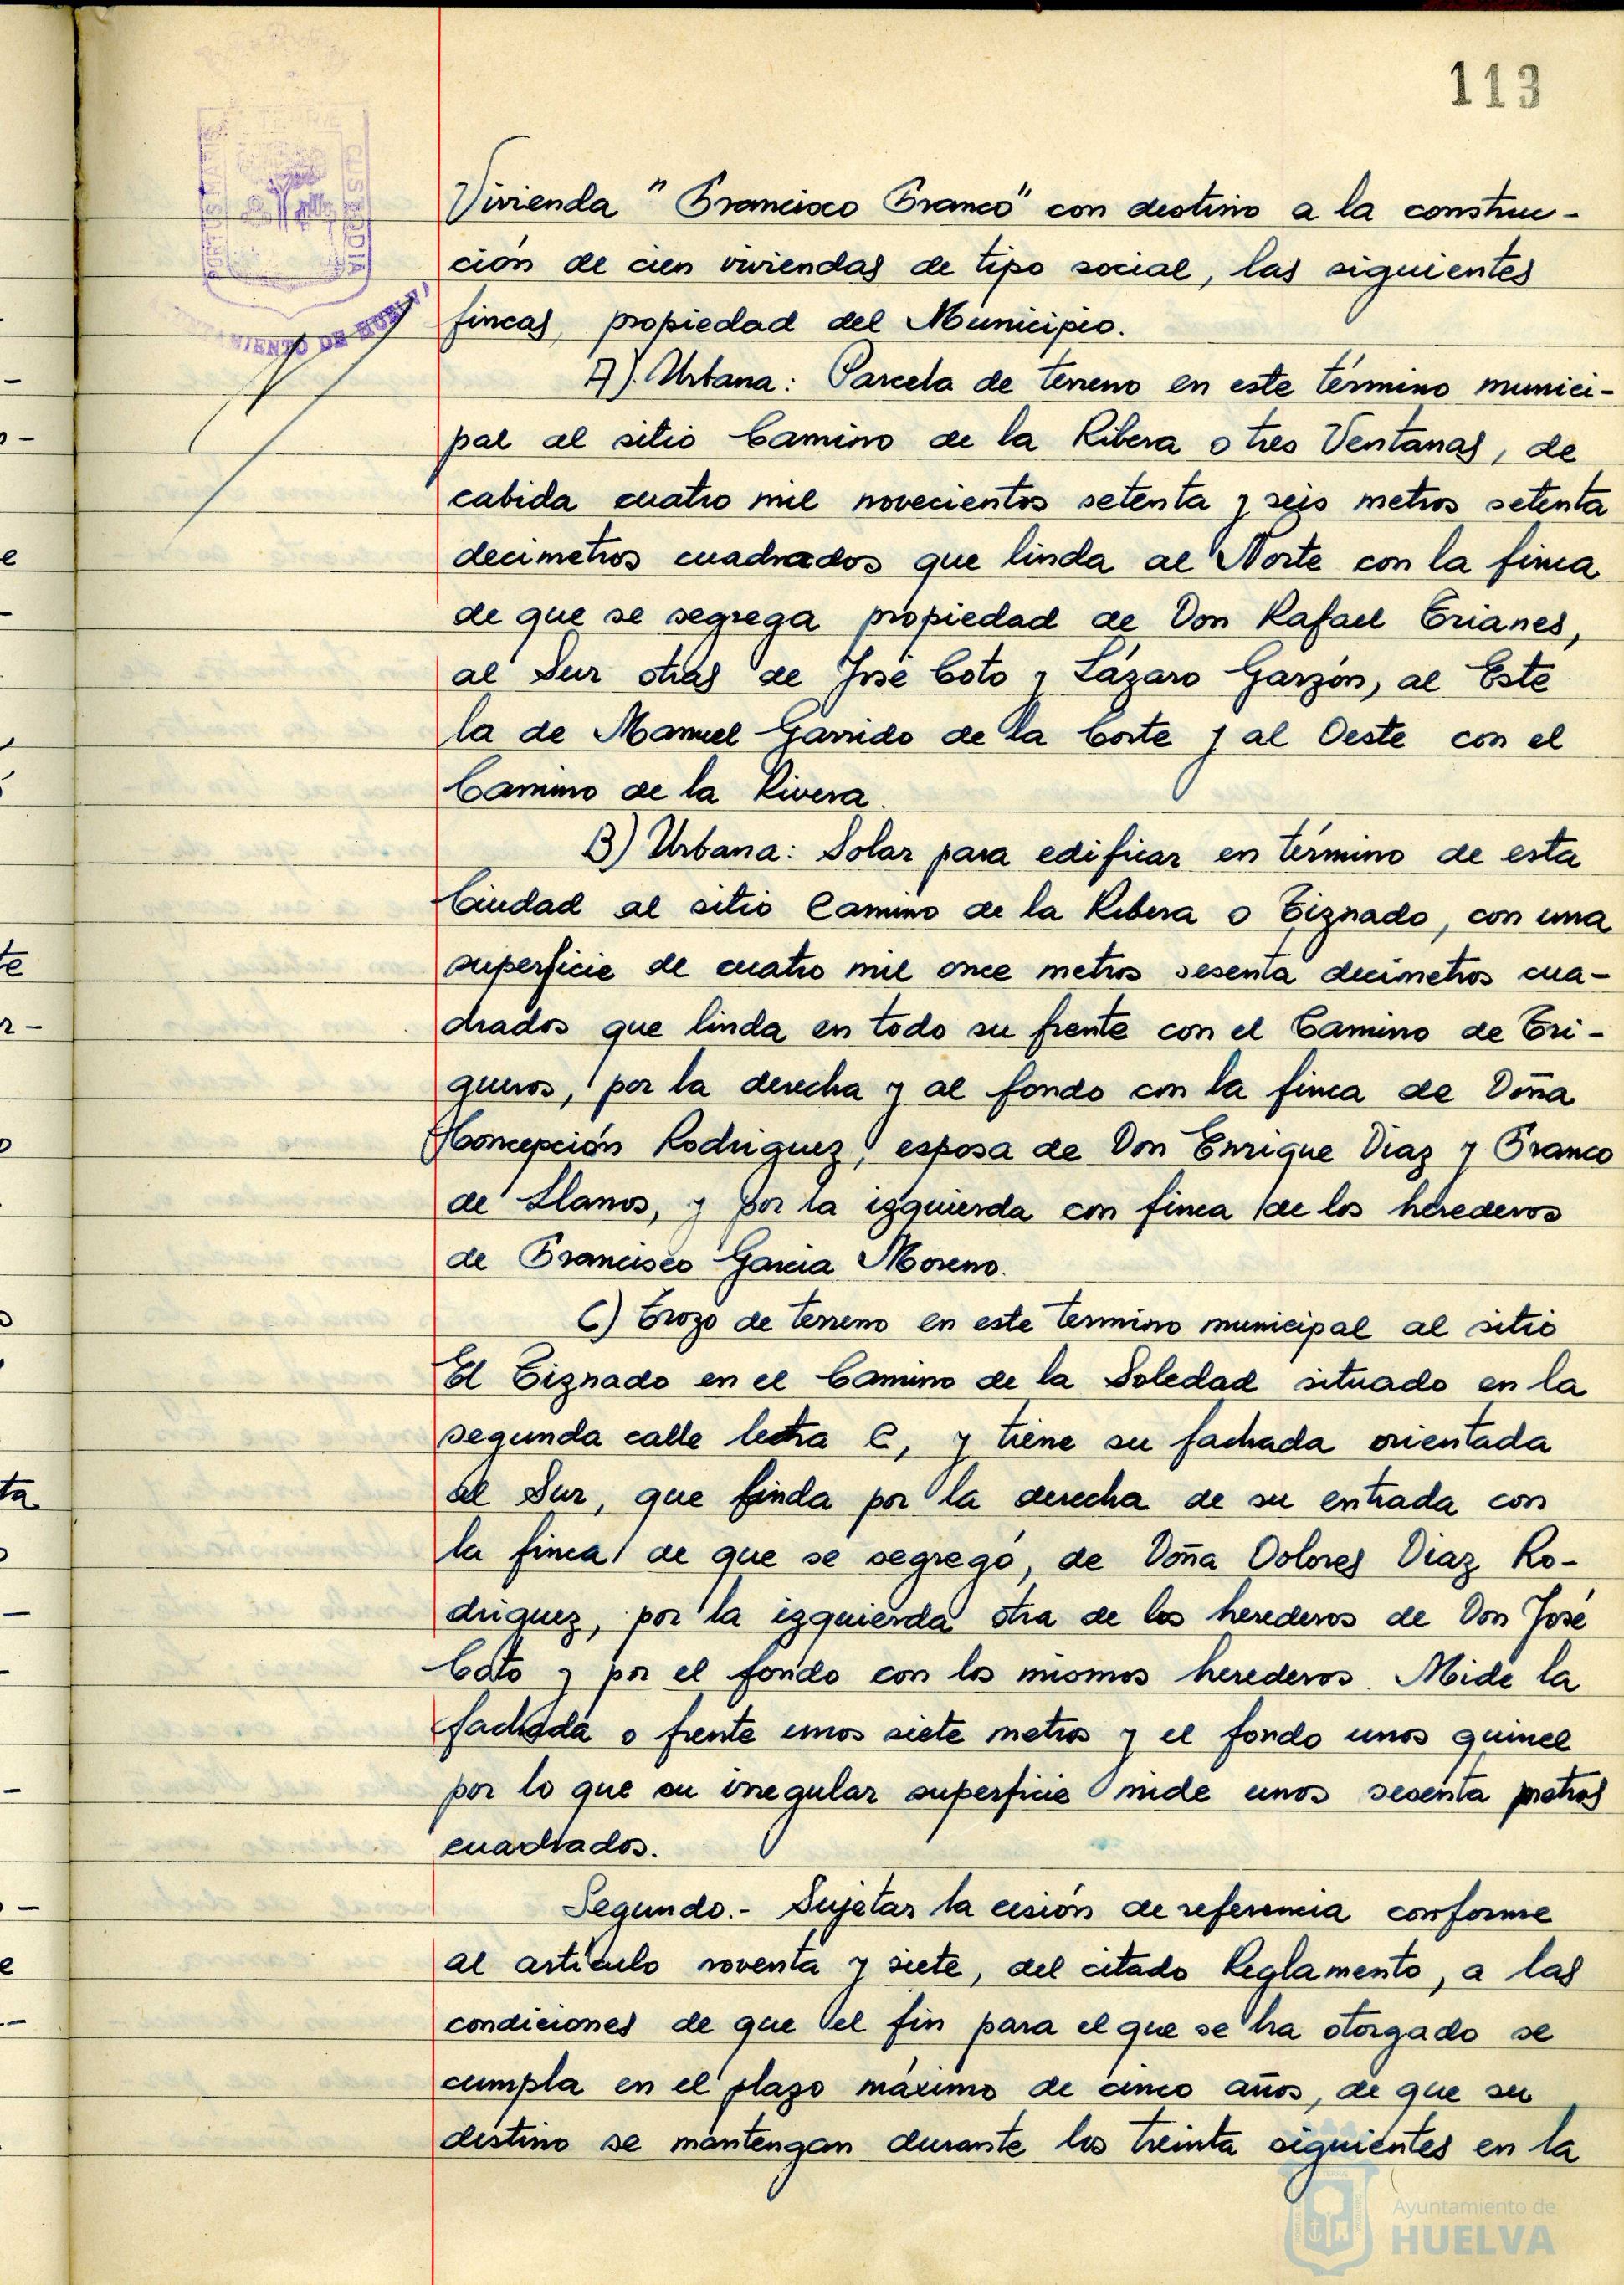 113
PORTUS MARIS
TERRAE
CUSTODIA
MIENTO DE HUELV
Vivienda "Francisco Franco" con destino a la construc-
ción de cien viviendas de tipo social, las siguientes
fincas, propiedad del Municipio.
A). Urbana: Parcela de terreno en este término munici-
pal al sitio Camino de la Ribera o tres Ventanas, de
cabida cuatro mil novecientos setenta y seis metros setenta
decimetros cuadrados que linda al Norte con la finca
de que se segrega propiedad de Don Rafael Trianes,
al Sur otras de José Coto y Lázaro Garzón, al Este
la de Manuel Garrido de la Corte y al Oeste con el
Camino de la Rivera.
B) Urbana: Solar para edificar en término de esta
Ciudad al sitio Camino de la Ribera o Tiznado, con una
superficie de cuatro mil once metros sesenta decimetros cua-
drados que linda en todo su frente con el Camino de Tri-
gueros, por la derecha y al fondo con la finca de Doña
Concepción Rodriguez, esposa de Don Enrique Diaz y Franco
de Llanos, y por la izquierda con finca de los herederos
de Francisco Garcia Moreno.
C) Trozo de terreno en este termino municipal al sitio
El Tiznado en el Camino de la Soledad situado en la
segunda calle letra C, y tiene su fachada orientada
al Sur, que linda por la derecha de su entrada con
la finca de que se segregó, de Doña Dolores Diaz Ro-
driguez, por la izquierda otra de los herederos de Don José
Coto y por el fondo con los mismos herederos. Mide la
fachada o frente unos siete metros y el fondo unos quince
por lo que su irregular superficie mide unos sesenta metros
cuadrados.
Segundo.- Sujetar la cesión de referencia conforme
al artículo noventa y siete, del citado Reglamento, a las
condiciones de que el fin para el que se ha otorgado se
cumpla en el plazo máximo de cinco años, de que su
destino se mantengan durante los treinta siguientes en la
Ayuntamiento de
HUELVA